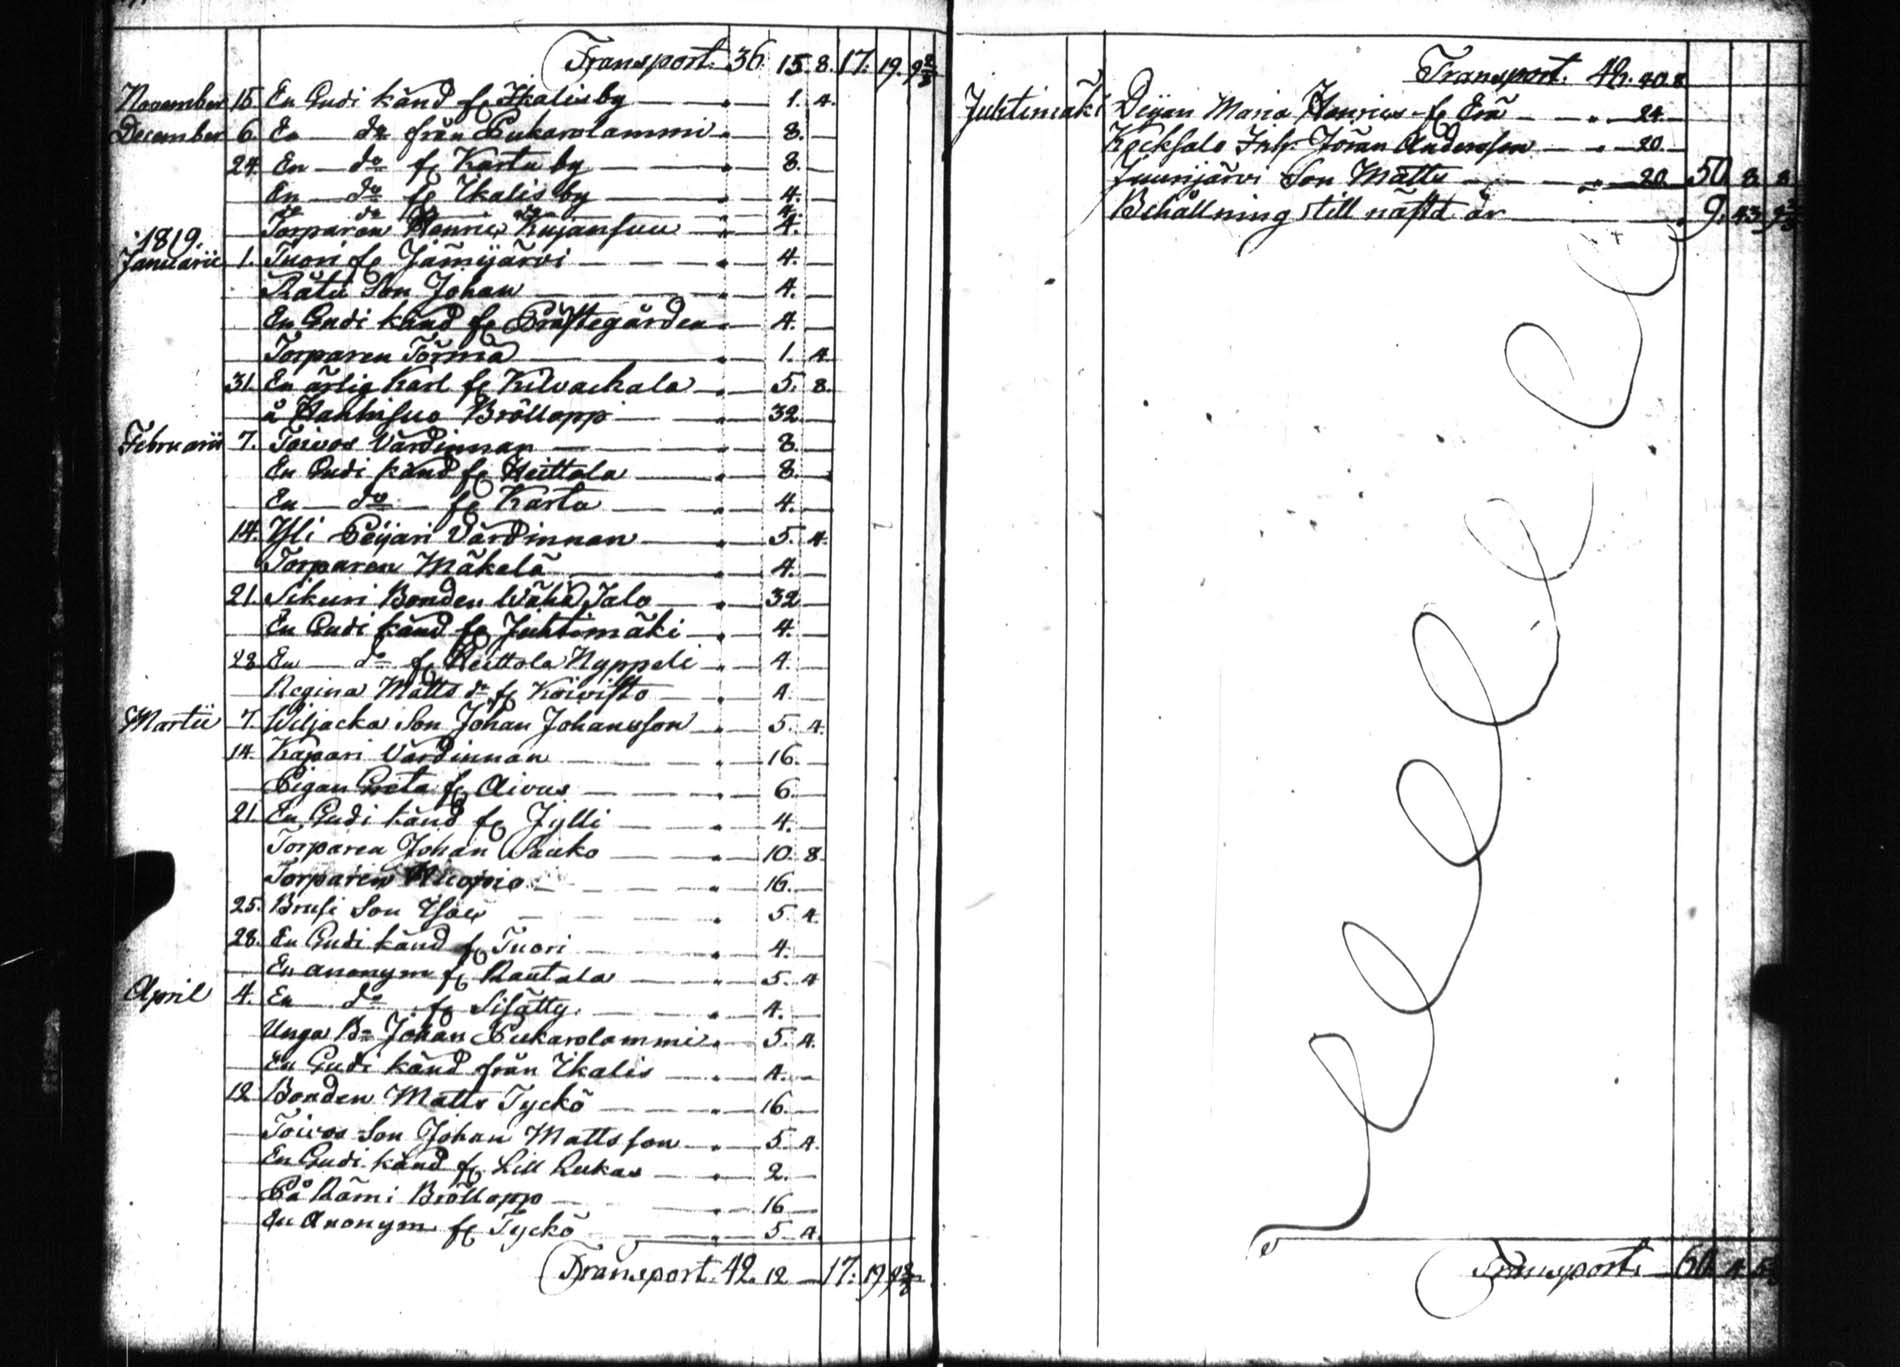 Transport. 36. 15. 8. 17. 19. 9 2/3
November 15. En Gudi känd fr Ikalisby 1. 4.
December 6. En do från Pukarolammi 8.
24. En do fr Kartu by 8.
En do fr Ikalis by 4.
do do do 4.
Torparen Henric Kujansuu 4.
1819.
Januarii 1. Tuori fr Jämijärvi 4.
Rätu Son Johan 4.
En Gudi känd fr Prästegården 4.
Torparen Törmä 1. 4.
31. En ärlig Karl fr Kilvackala 5. 8.
å Hanhisuo Bröllopp 32.
Februarii 7. Toivos Värdinnan 8.
En Gudi känd fr Heittola 8.
En do fr Karta 4.
14. Yli Peijari Värdinnan 5. 4.
Torparen Mäkelä 4.
21. Sikuri Bonden Wähä Jalo 32
En Gudi känd fr Juhtimäki 4.
28 En do fr Heittola Nyppeli 4.
Regina Matts dr fr Koivisto 4.
Martii 7. Wiljacka Son Johan Johansson 5. 4.
14. Kapari Värdinnan 16.
Pigan Greta fr Aivus 6.
21. En Gudi känd fr Jylli 4.
Torparen Johan Sauko 10. 8.
Torparen 16.
25. Brusi Son Isac 5. 4.
28. En Gudi känd fr Tuori 4.
En anonym fr Rautala 5. 4
April 4. En do fr Sisätty 4.
Unga Bn Johan Pukarolammi 5. 4.
En Gudi känd från Ikalis 4.
12. Bonden Matts Tyckö 16.
Toivos Son Johan Mattsson 5. 4.
En Gudi känd fr Lill Leukas 2.
På Rämi Bröllopp 16
En Anonym fr Tyckö 5. 4.
Transport. 42. 12 17. 19 9 2/3
Transport. 42. 20. 8
Juhtimäki Pigan Maria Henrics fr Erä 24
Kocksalo Inh. Jöran Andersson 20.
Juurijärvi Son Matts 20. 50. 8. 8
Behållning till nästa år 9. 43.
Transport. 60. 4.